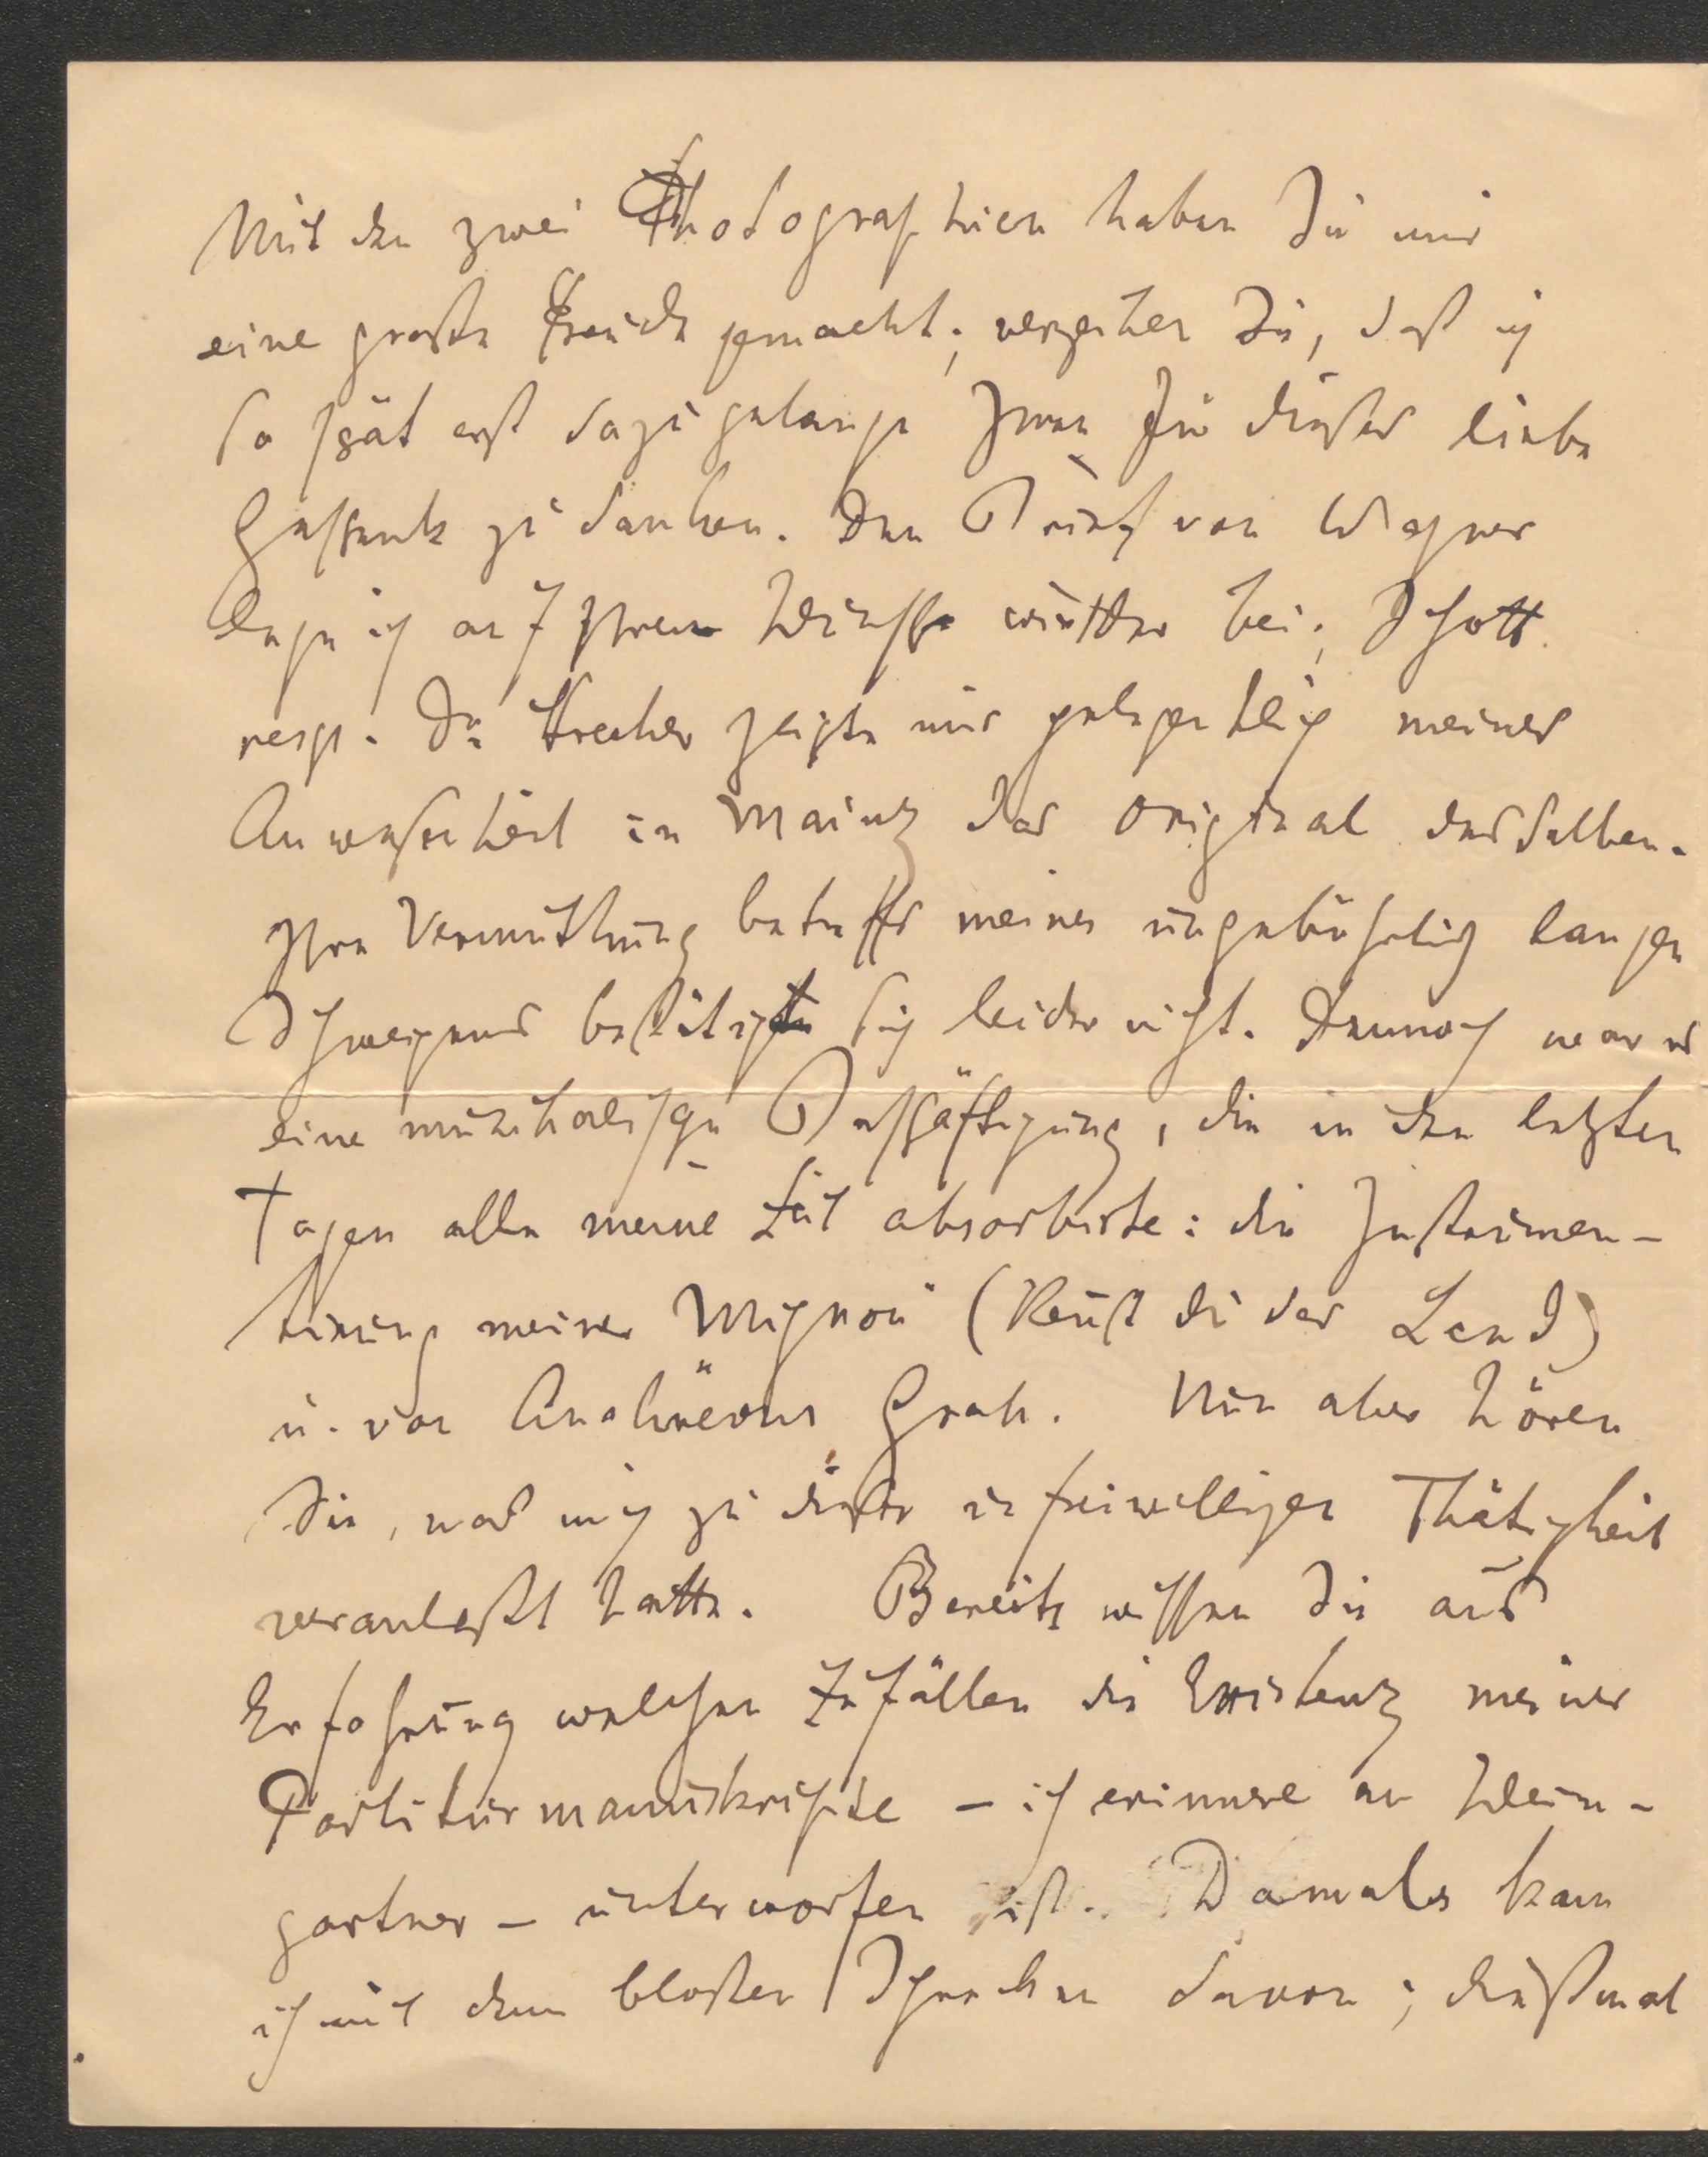 Mit den zwei Photographien haben Sie mir
eine große Freude gemacht; verzeihen Sie, daß ich
so spät erst dazu gelange Ihnen für dieses liebe
Geschenk zu danken. Den Brief von Wagner
lege ich auf Ihren Wunsch wieder bei; Schott
resp. Dr Strecker zeigte mir gelegentlich meiner
Anwesenheit in Mainz das Original desselben.
Ihre Vermuthung betreffs meines ungebührlich langen
Schweigens bestätigte sich leider nicht. Dennoch war es
eine musikalische Beschäftigung, die in den letzten
Tagen alle meine Zeit absorbirte: die Instrumen-
tirung meiner Mignon (Kennst du das Land)
u. von Anakreons Grab. Nun aber hören
Sie, was mich zu dieser unfreiwilligen Thätigkeit
veranlaßt hatte. Bereits wissen Sie aus
Erfahrung welchen Zufällen die Existenz meiner
Partiturmanuskripte – ich erinnere an Wein-
gartner – unterworfen ist. Damals kam
ich mit dem bloßen Schrecken davon; dießmal